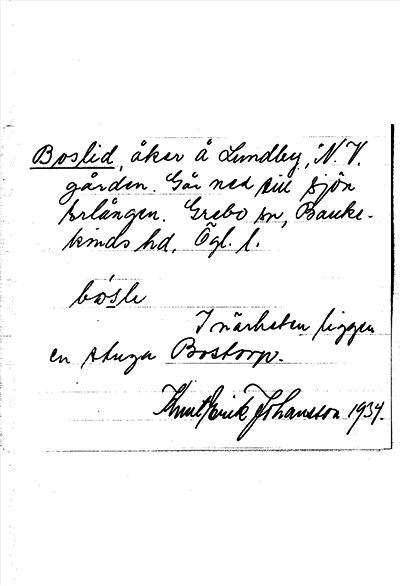 Boslid, åker å Lundby, N. V.
gården. Går ned till sjön
Erlången. Grebo sn, Banke-
kinds hd, Ögl. l.
bósle
I närheten ligger
en stuga Bostorp.
Knut Erik Johansson 1934.